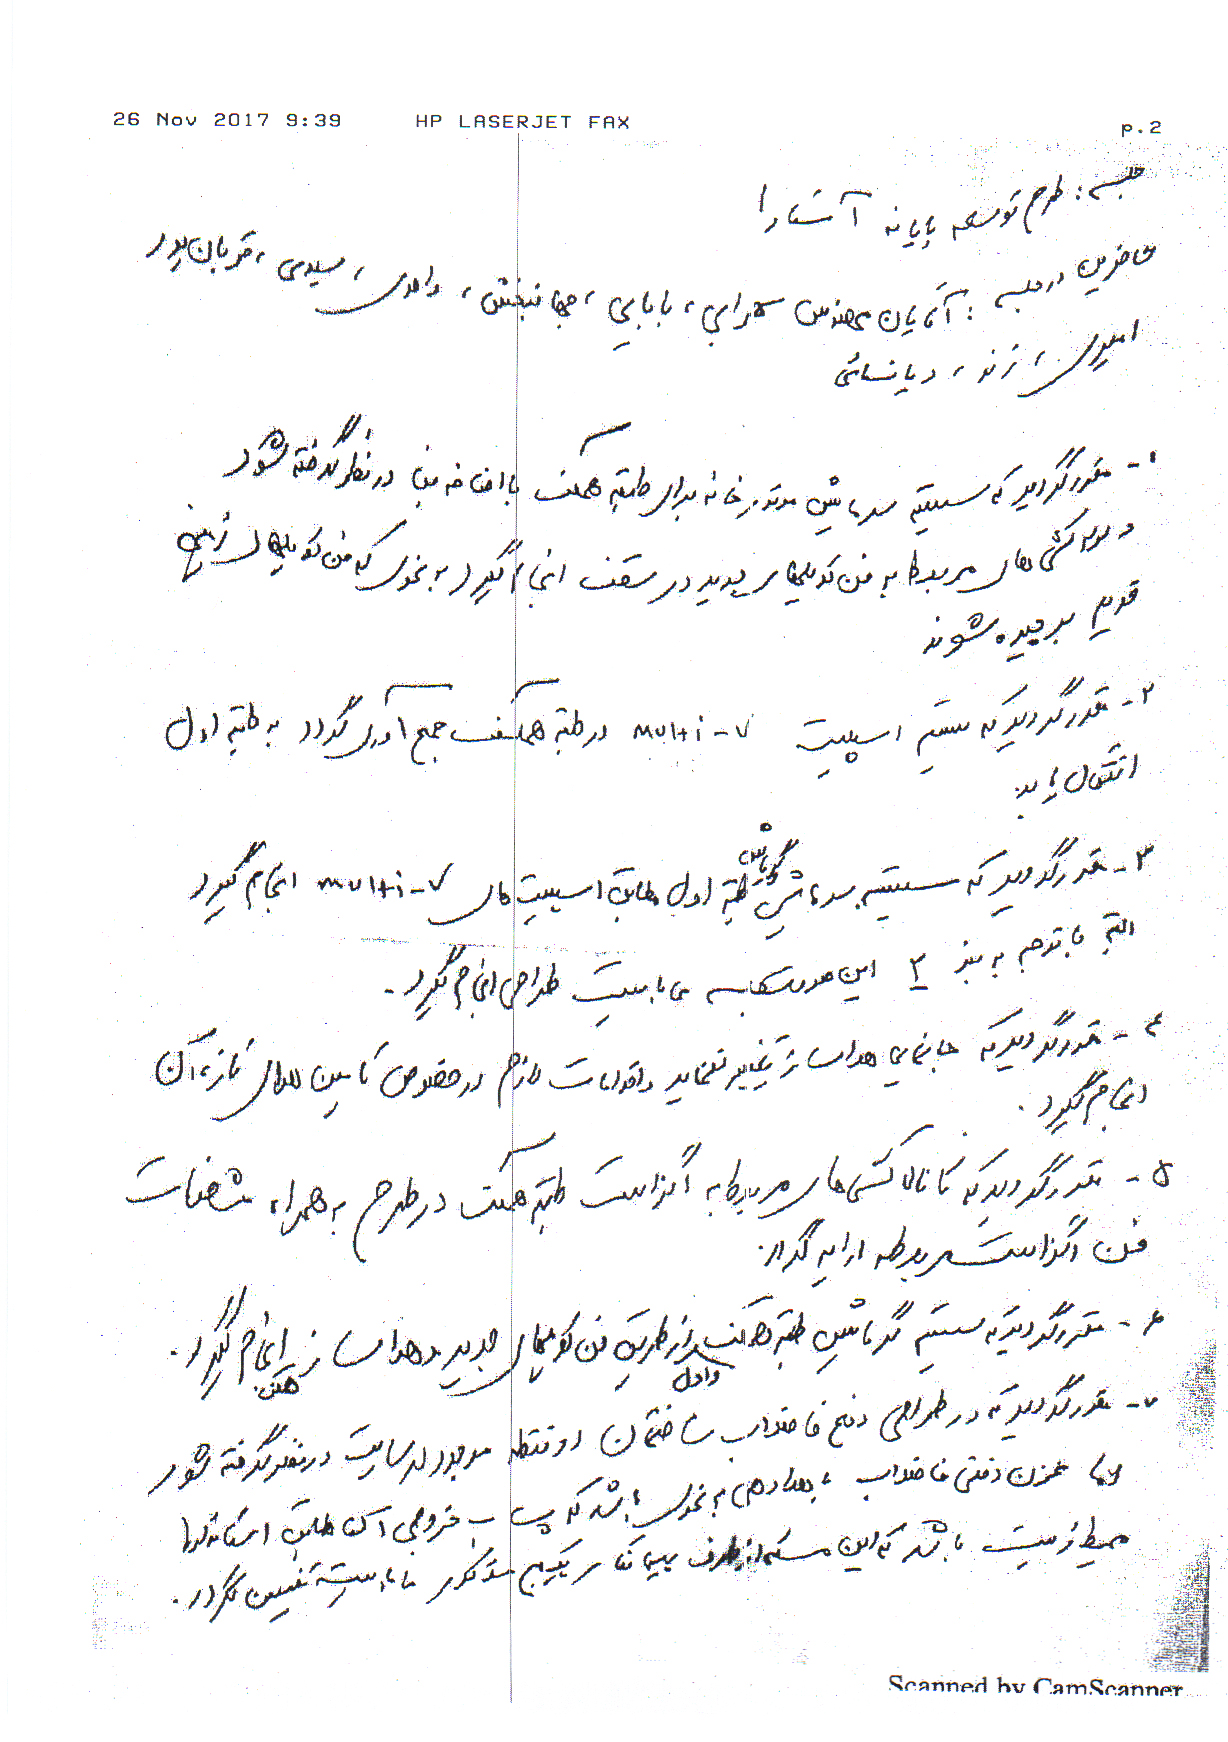 26 Nov 2017 9:39 HP LASERJET FAX p.2
جلسه : طرح توسعه پایانه آستارا
حاضرین در جلسه : آقایان مهندس سهرابی ، بابایی ، جهانبخش ، واحدی ، سیدی ، قربان‌پور
امیری ، زند ، دیانسائی
۱- مقرر گردید که سیستم سرمایش موتورخانه برای طبقه همکف با اضافه بنا در نظر گرفته شود
و لوله کشی های مربوط به فن کویلهای جدید در سقف انجام گیرد به نحوی که فن کویلهای زمینی
قدیم برچیده شوند
۲- مقرر گردید که سیستم اسپلیت multi-v در طبقه همکف جمع آوری گردد به طبقه اول
انتقال یابد.
۳- مقرر گردید که سیستم سرمایش گرمایش طبقه اول مطابق اسپلیت های multi-v انجام گیرد
البته با توجه به بند ۲ این محاسبه می بایست طراحی انجام گیرد.
۴- مقرر گردید که جانمایی هواساز تغییر ننماید و اقدامات لازم در خصوص تامین هوای تازه آن
انجام گیرد.
۵- مقرر گردید که کانال کشی های مربوط به اگزاست طبقه همکف در طرح به همراه مشخصات
فن اگزاست مربوطه ارایه گردد.
۶- مقرر گردید که سیستم گرمایش طبقه همکف و اول از طریق فن کویلهای جدید و هواساز همکف انجام گیرد.
۷- مقرر گردید که در طراحی دفع فاضلاب ساختمان دو نقطه موجود در سایت در نظر گرفته شود
و یا مخزن دفنی فاضلاب با هوادهی به نحوی باشد که پساب خروجی آن مطابق استانداردها
محیط زیست باشد که این مسئله از طرف پیمانکار پکیج مذکور می بایست تضمین گردد.
Scanned by CamScanner